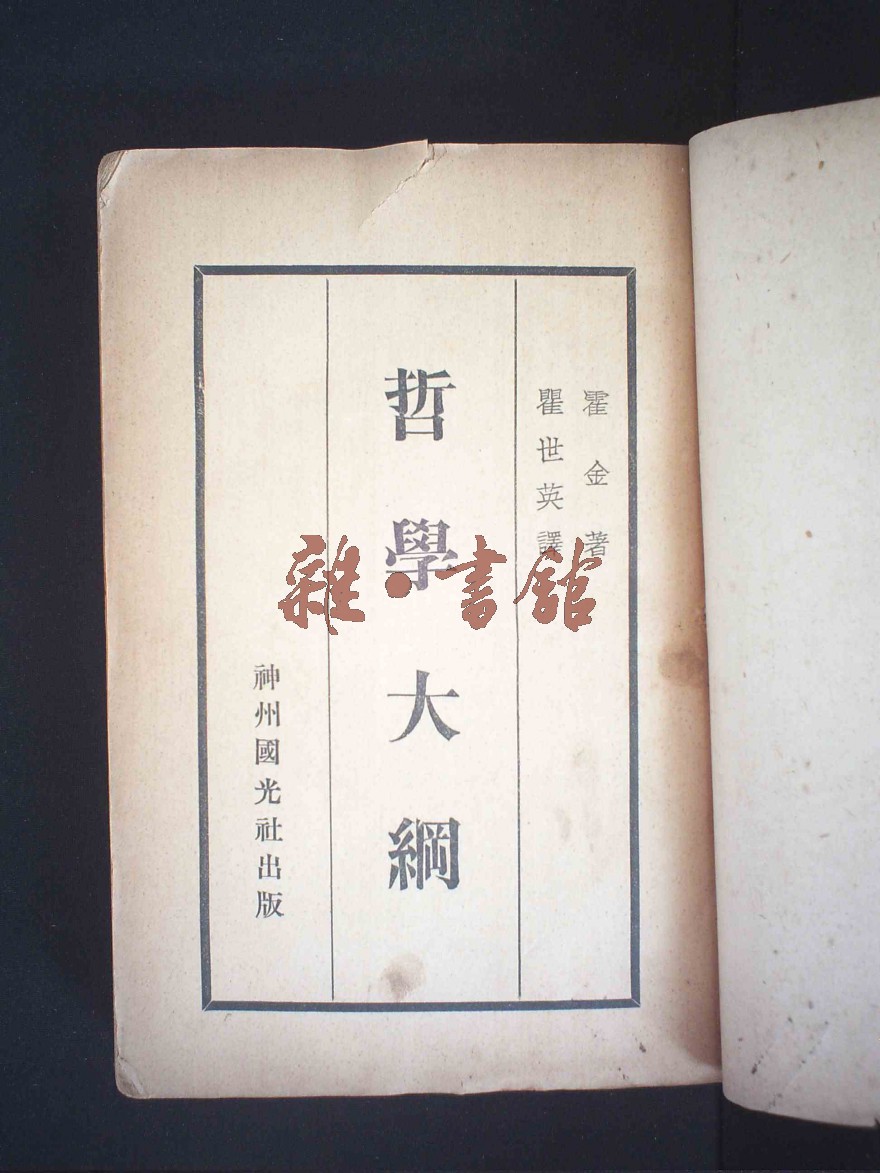 霍金著
瞿世英譯
哲學大綱
神州國光社出版
雜·書館